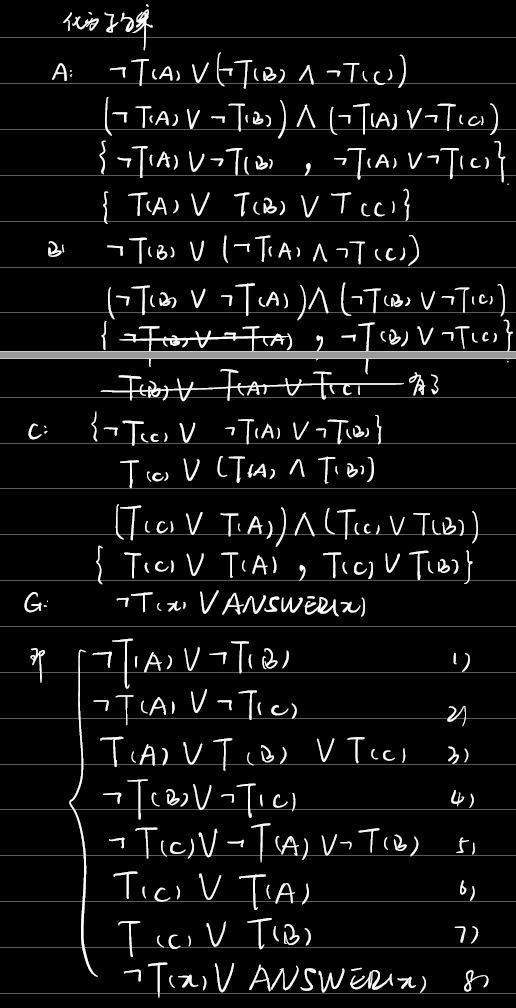 化为子句集
A: ¬T(A) ∨ (¬T(B) ∧ ¬T(C))
(¬T(A) ∨ ¬T(B)) ∧ (¬T(A) ∨ ¬T(C))
{¬T(A) ∨ ¬T(B) , ¬T(A) ∨ ¬T(C)}
{ T(A) ∨ T(B) ∨ T(C)}
B: ¬T(B) ∨ (¬T(A) ∧ ¬T(C))
(¬T(B) ∨ ¬T(A)) ∧ (¬T(B) ∨ ¬T(C))
{ ¬T(B) ∨ ¬T(A) , ¬T(B) ∨ ¬T(C)}
T(B) ∨ T(A) ∨ T(C) 有了
C: {¬T(C) ∨ ¬T(A) ∨ ¬T(B)}
T(C) ∨ (T(A) ∧ T(B))
(T(C) ∨ T(A)) ∧ (T(C) ∨ T(B))
{ T(C) ∨ T(A) , T(C) ∨ T(B)}
G: ¬T(x) ∨ ANSWER(x)
即 ¬T(A) ∨ ¬T(B) 1)
¬T(A) ∨ ¬T(C) 2)
T(A) ∨ T(B) ∨ T(C) 3)
¬T(B) ∨ ¬T(C) 4)
¬T(C) ∨ ¬T(A) ∨ ¬T(B) 5)
T(C) ∨ T(A) 6)
T(C) ∨ T(B) 7)
¬T(x) ∨ ANSWER(x) 8)